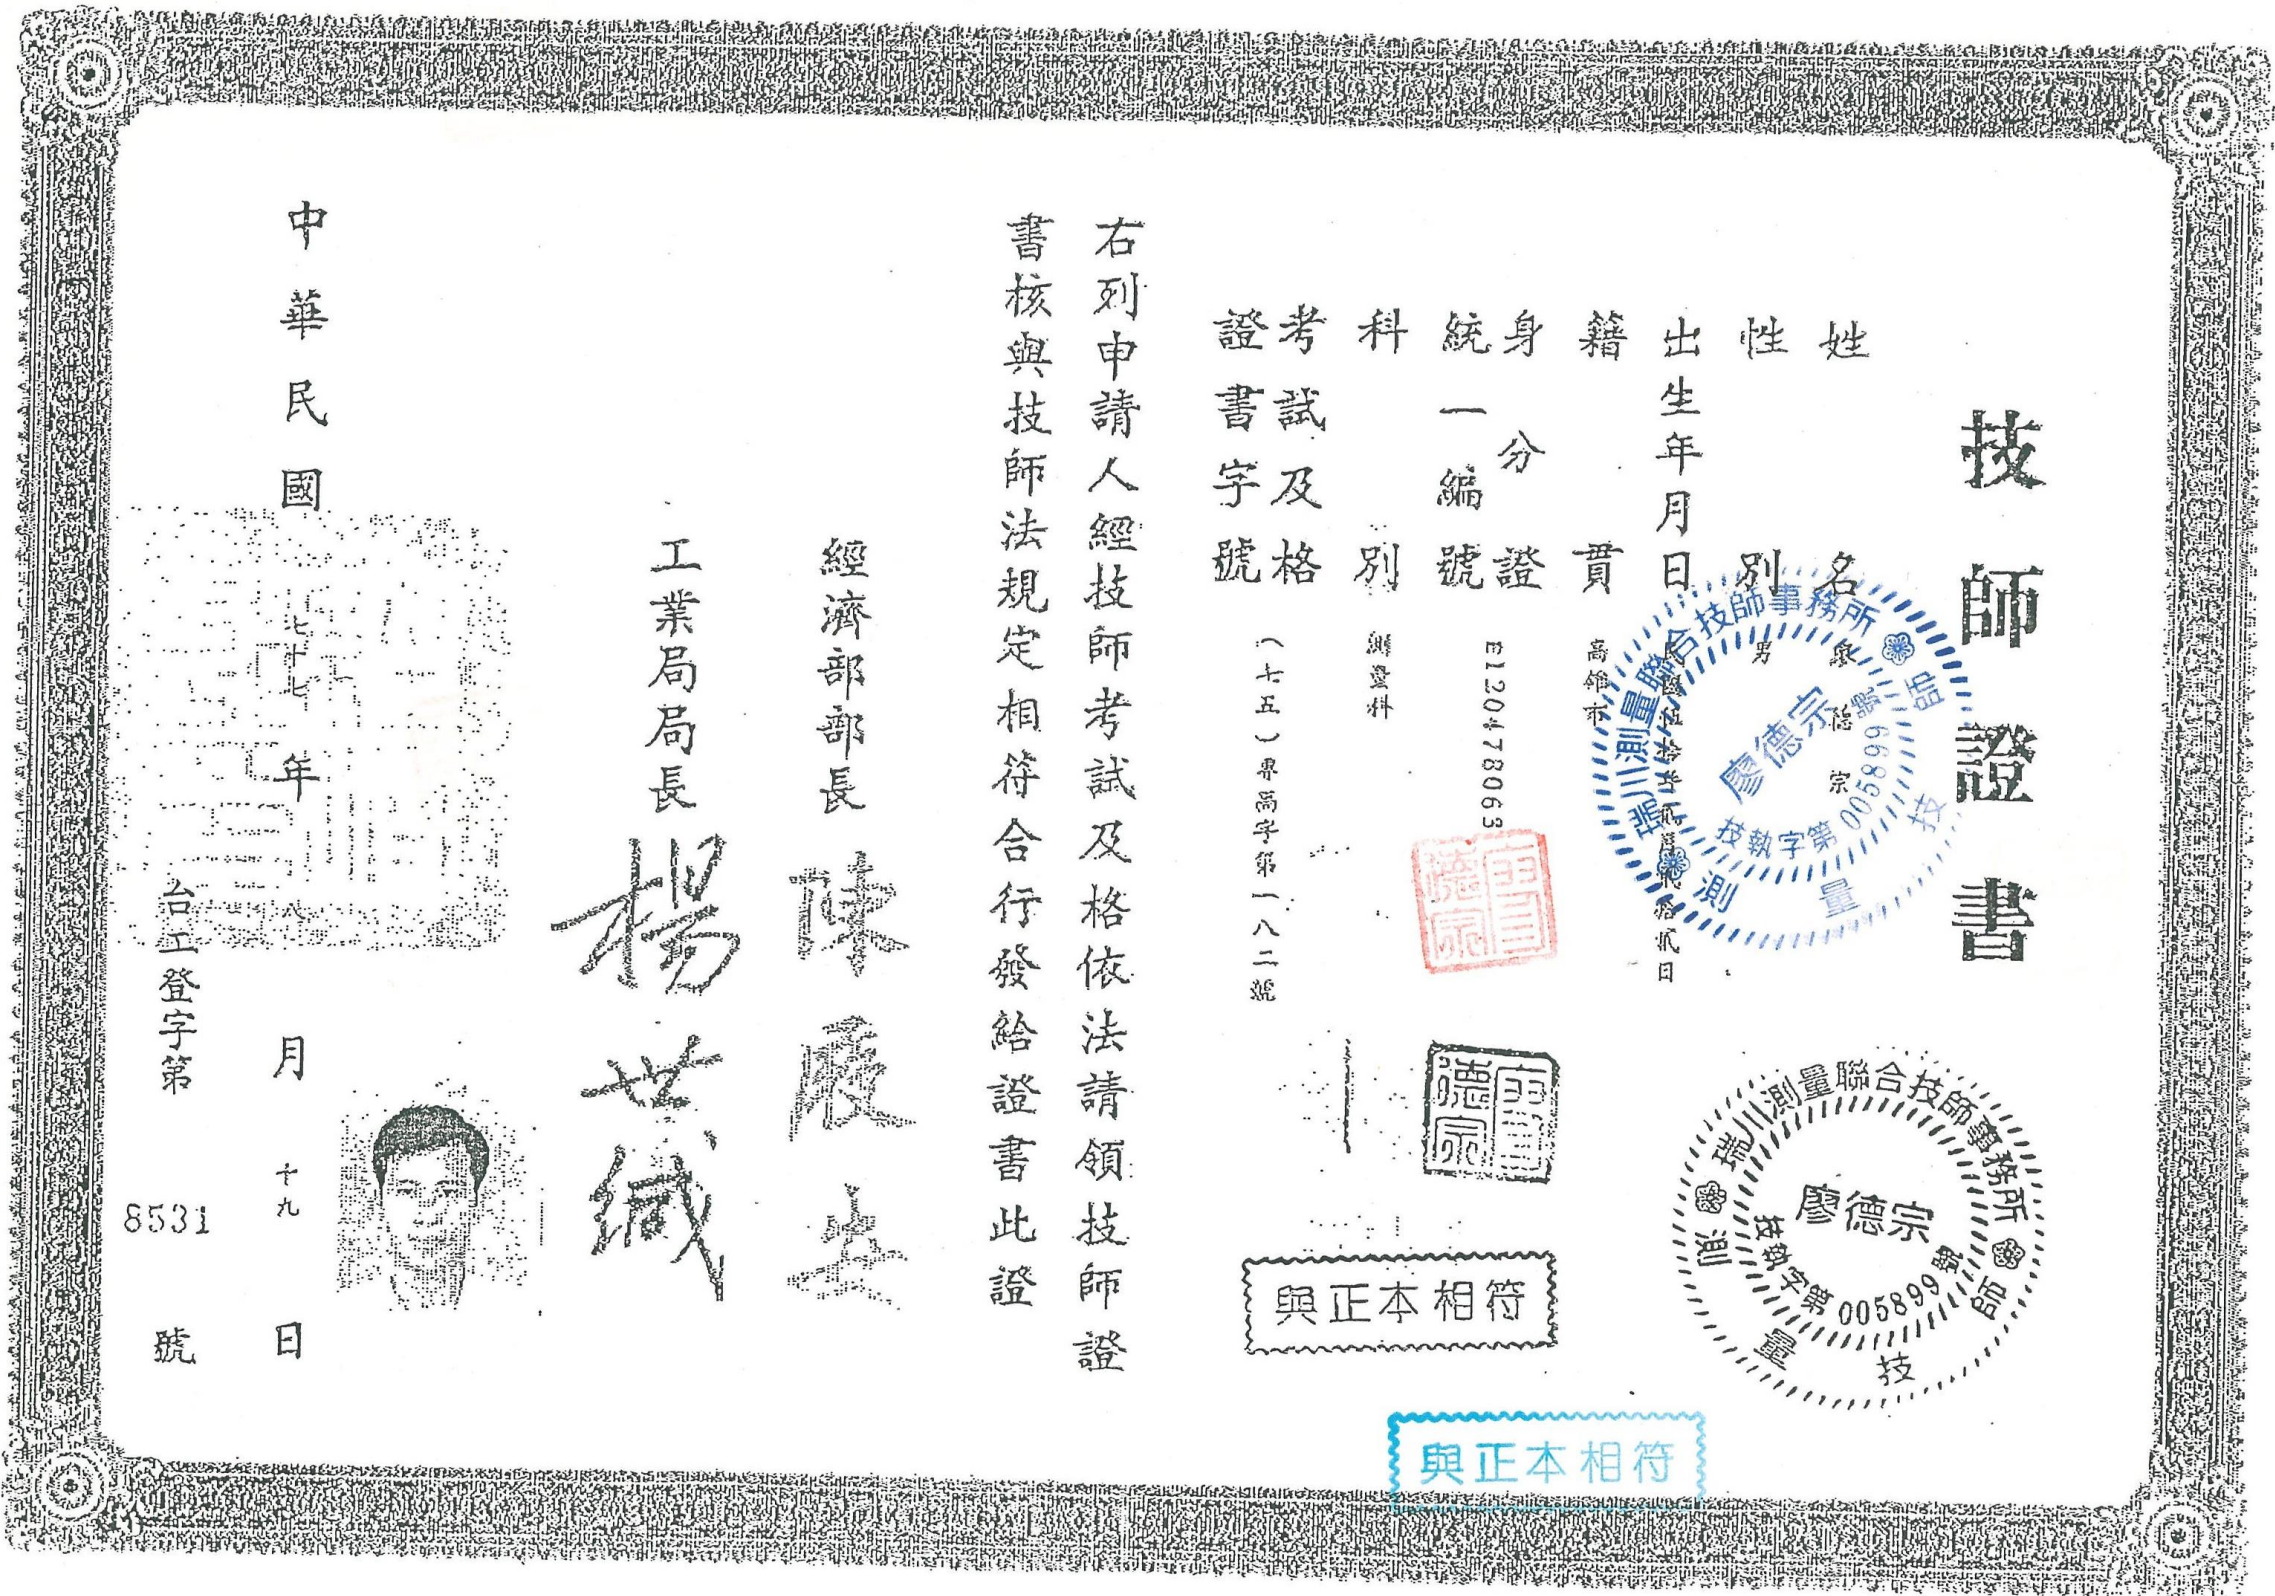 技師證書
姓名 廖德宗
性別 男
出生年月日
籍貫 高雄市
身分證
統一編號 E120478063
科別 測量科
考試及格
證書字號 (七五)專高字第一八二號
右列申請人經技師考試及格依法請領技師證
書核與技師法規定相符合行發給證書此證
經濟部部長 陳履安
工業局局長 楊世緘
中華民國七十七年八月十九日
台工登字第8531號
瑞川測量聯合技師事務所
測量技師
廖德宗
技執字第005899號
瑞川測量聯合技師事務所
測量技師
廖德宗
技執字第005899號
廖德宗
廖德宗
與正本相符
與正本相符